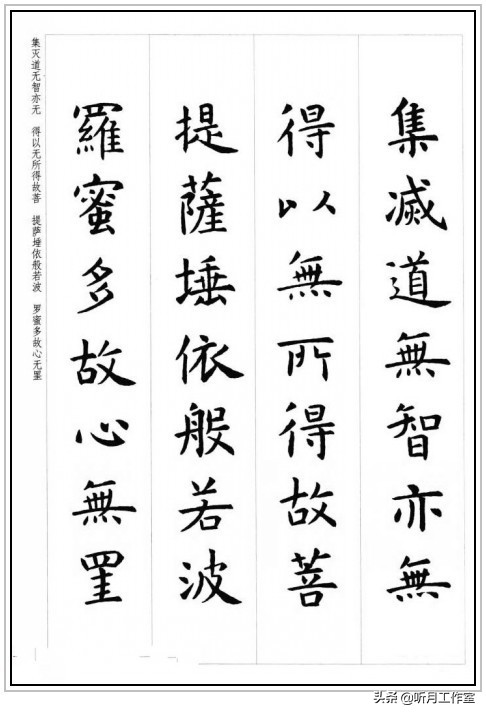 集滅道無智亦無
得以無所得故菩
提薩埵依般若波
羅蜜多故心無罣
集灭道无智亦无 得以无所得故菩 提萨埵依般若波 罗蜜多故心无罣
头条 @听月工作室